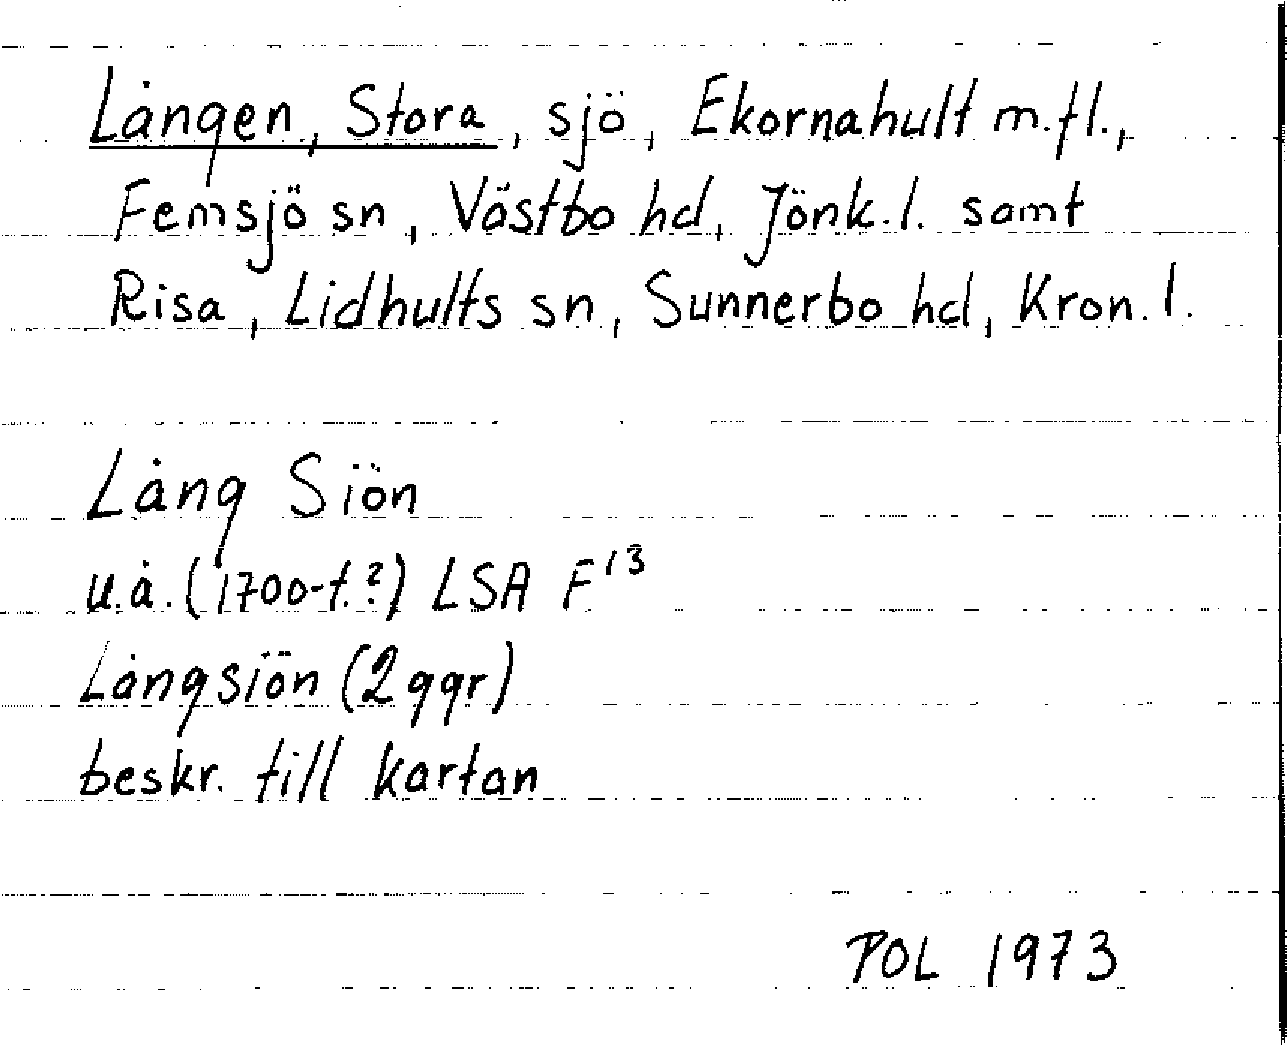 Lången, Stora, sjö, Ekornahult m.fl.,
Femsjö sn, Västbo hd, Jönk.l. samt
Risa, Lidhults sn, Sunnerbo hd, Kron.l.
Lång Siön
u.å. (1700-t.?) LSA F13
Långsiön (2 ggr)
beskr. till kartan
POL 1973